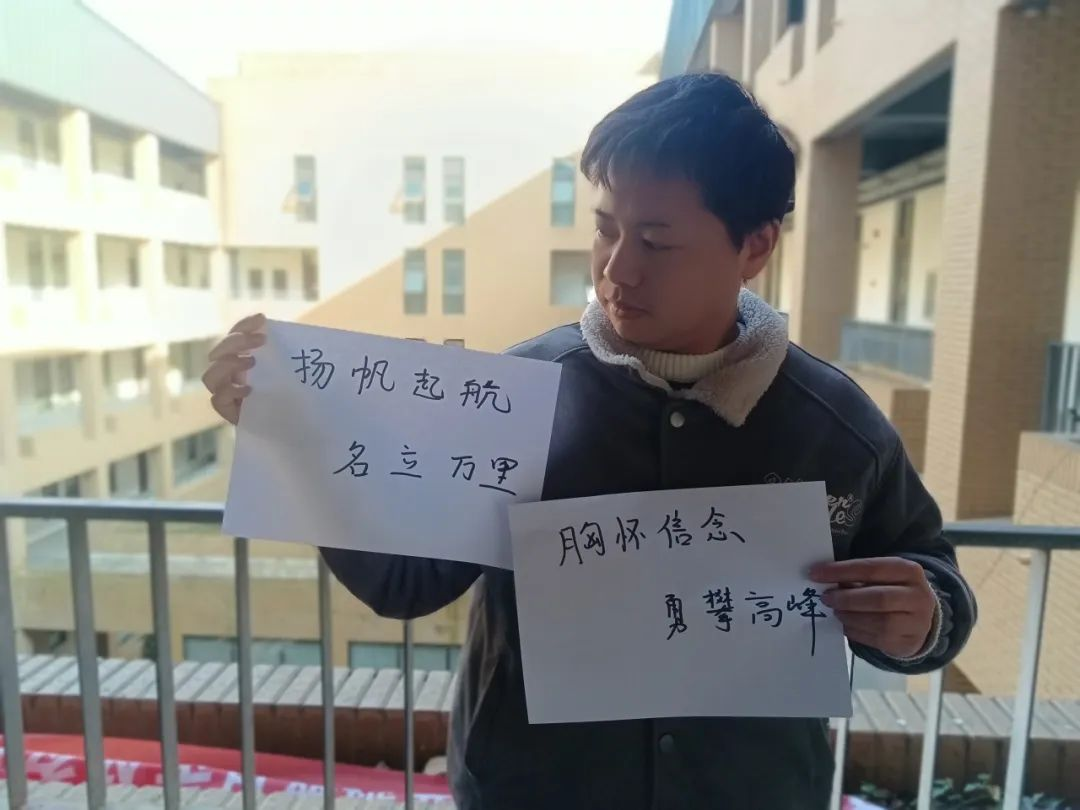 扬帆起航
名立万里
胸怀信念
勇攀高峰